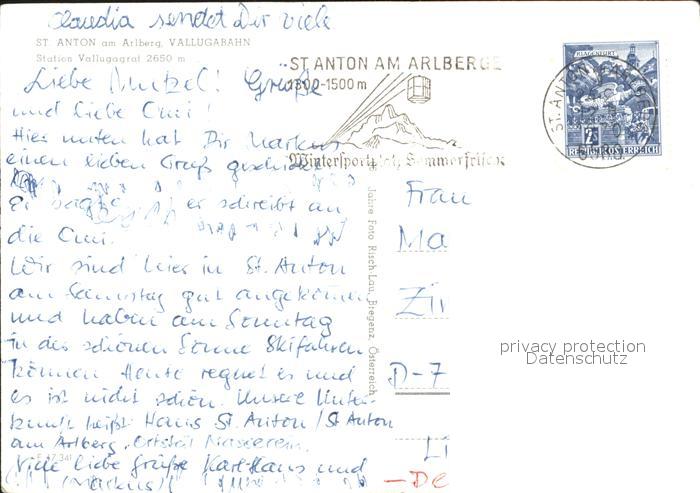 Claudia sendet Dir viele
Grüße
ST. ANTON am Arlberg, VALLUGABAHN
Station Vallugagrat 2650 m
Liebe Mutzel!
und liebe Omi!
Hier unten hat Dir Markus
einen lieben Gruß geschickt
Er sagte er schreibt an
die Omi.
Wir sind hier in St. Anton
am Samstag gut angekommen
und haben am Sonntag
in der schönen Sonne Skifahren
können Heute regnet es und
es ist nicht schön. Unsere Unter-
kunft heißt: Haus St. Anton / St Anton
am Arlberg. Ortsteil Nasserein.
Viele liebe Grüße Karl-Hans und
(Markus)
ST. ANTON AM ARLBERG
1300-1500 m
Wintersportplatz, Sommerfrische
ST. ANTON
KLAGENFURT
REPUBLIK ÖSTERREICH
Jahre Foto Risch-Lau, Bregenz, Österreich
Frau
Ma
D-7
LI
-DE
privacy protection
Datenschutz